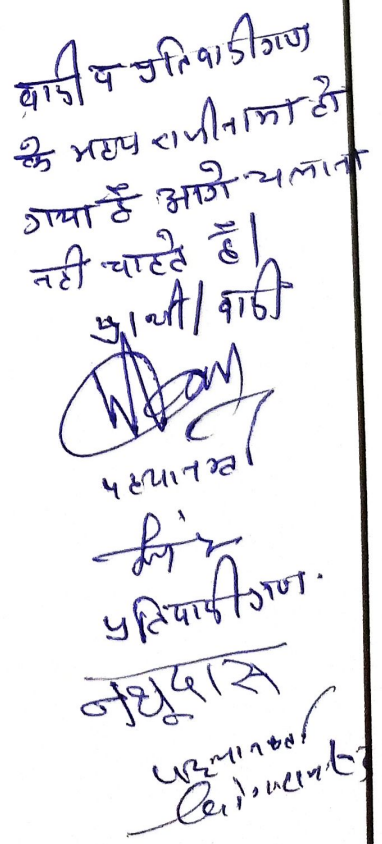 वादी व प्रतिवादीगण
के मध्य राजीनामा हो
गया है आगे चलाना
नही चाहते हैं।
प्रार्थी/वादी
पहचानकर्ता
प्रतिवादीगण.
नथूदास
पहचानकर्ता